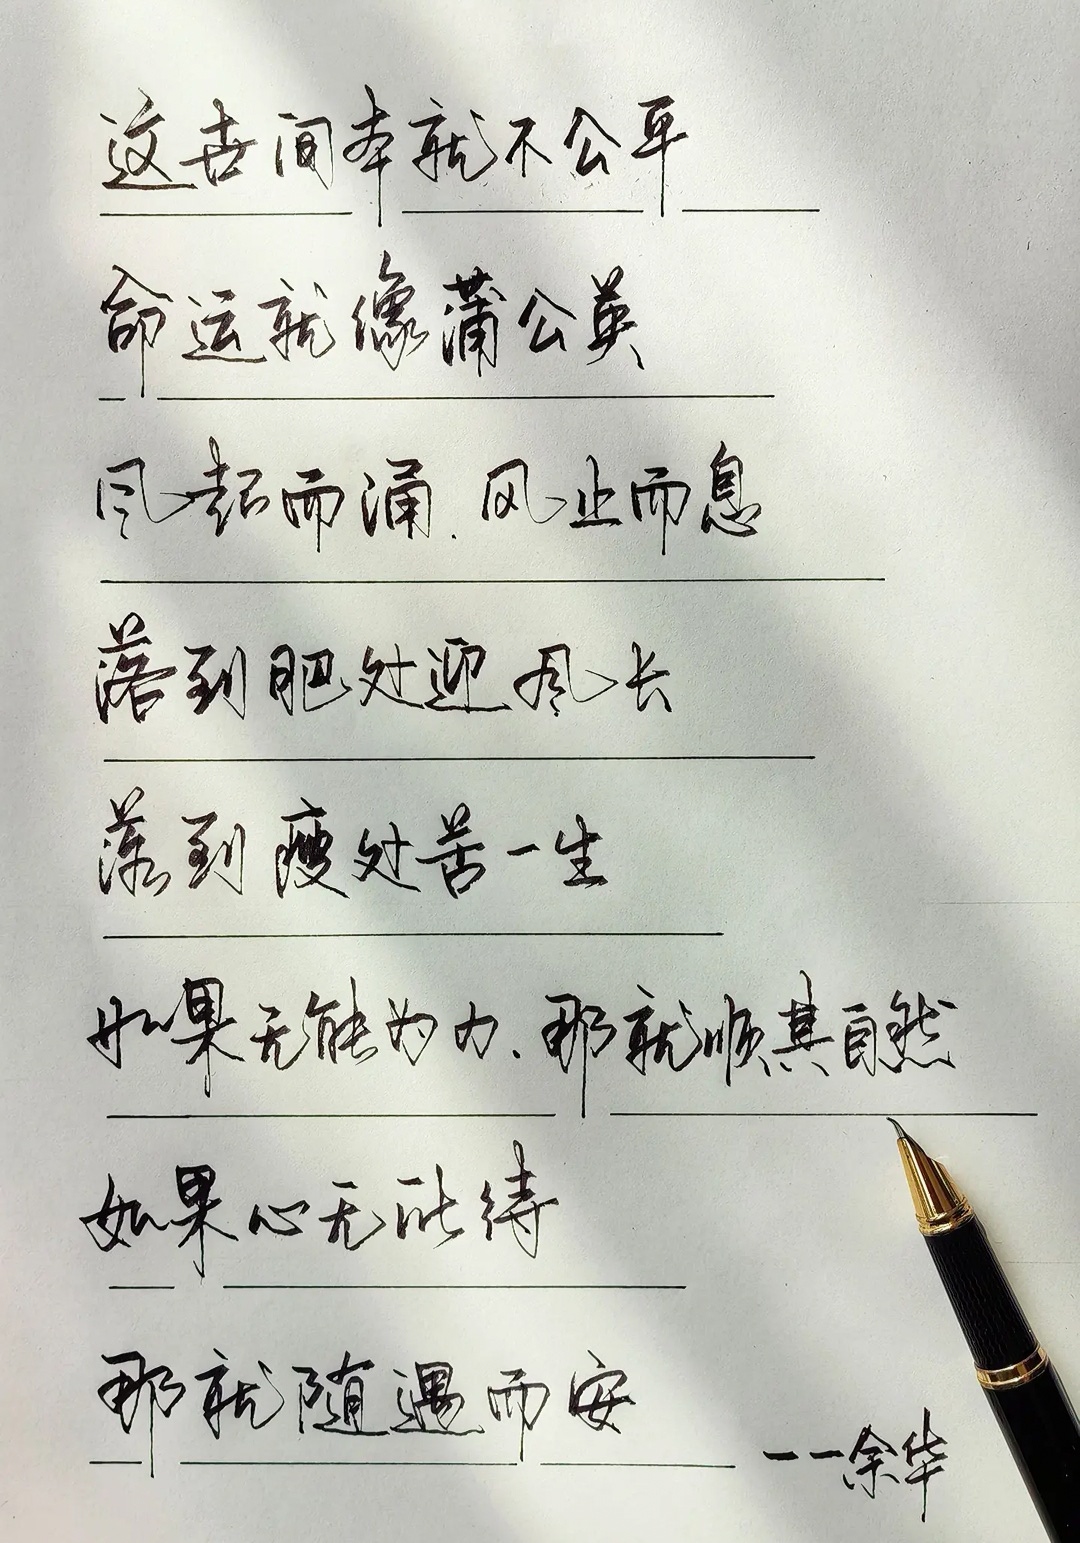 这世间本就不公平
命运就像蒲公英
风起而涌.风止而息
落到肥处迎风长
落到瘦处苦一生
如果无能为力、那就顺其自然
如果心无所待
那就随遇而安
一一余华